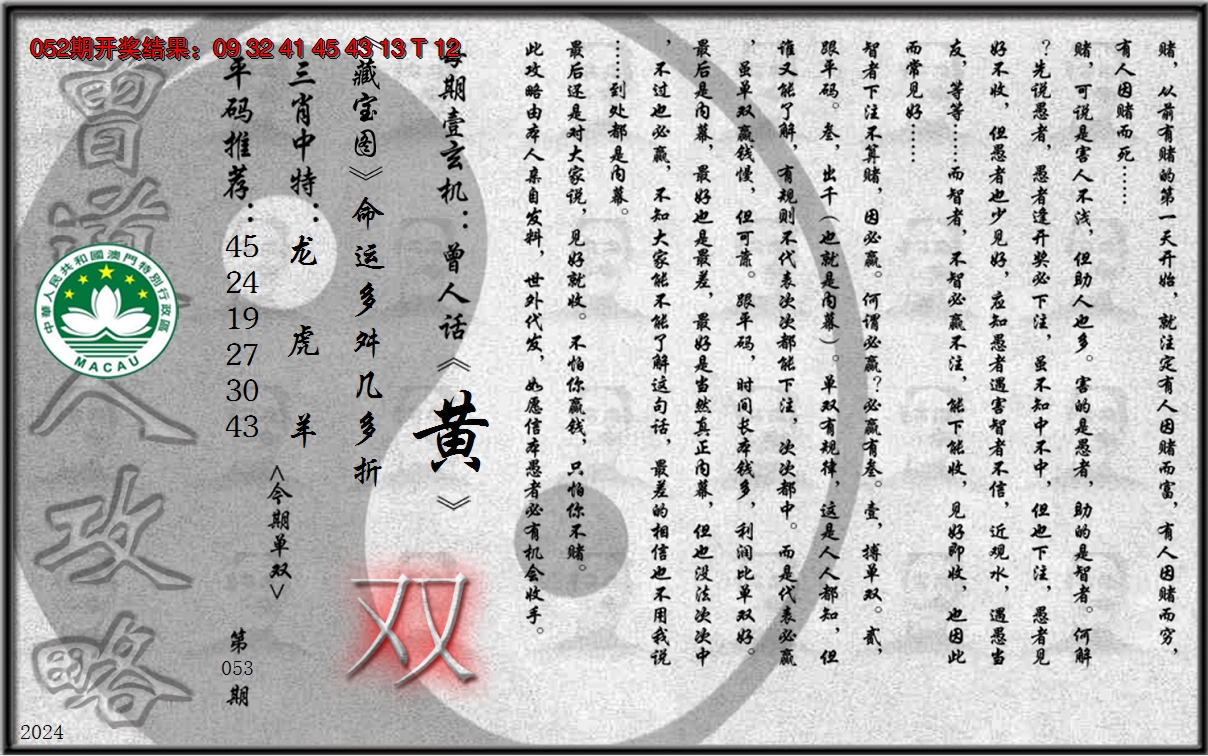 052期开奖结果：09 32 41 45 43 13 T 12
赌，从前有赌的第一天开始，就注定有人因赌而富，有人因赌而穷，
有人因赌而死……
赌，可说是害人不浅，但助人也多。害的是愚者，助的是智者。何解
？先说愚者，愚者逢开奖必下注，虽不知中不中，但也下注，愚者见
好不收，但愚者也少见好，应知愚者遇害智者不信，近观水，遇愚当
友，等等……而智者，不智必赢不注，能下能收，见好即收，也因此
而常见好……
智者下注不算赌，因必赢。何谓必赢？必赢有叁。壹，搏单双。贰，
跟平码。叁，出千（也就是内幕）。单双有规律，这是人人都知，但
谁又能了解，有规则不代表次次都能下注，次次都中。而是代表必赢
，虽单双赢钱慢，但可靠。跟平码，时间长本钱多，利润比单双好。
最后是内幕，最好也是最差，最好是当然真正内幕，但也没法次次中
，不过也必赢，不知大家能不能了解这句话，最差的相信也不用我说
……到处都是内幕。
最后还是对大家说，见好就收。不怕你赢钱，只怕你不赌。
此攻略由本人亲自发料，世外代发，如愿信本愚者必有机会收手。
每期壹玄机：曾人话《黄》
《藏宝图》命运多舛几多折
双
三肖中特：龙 虎 羊
<今期单双>
平码推荐：
45
24
19
27
30
43
第
053
期
曾道人攻略
中華人民共和國澳門特別行政區
MACAU
2024